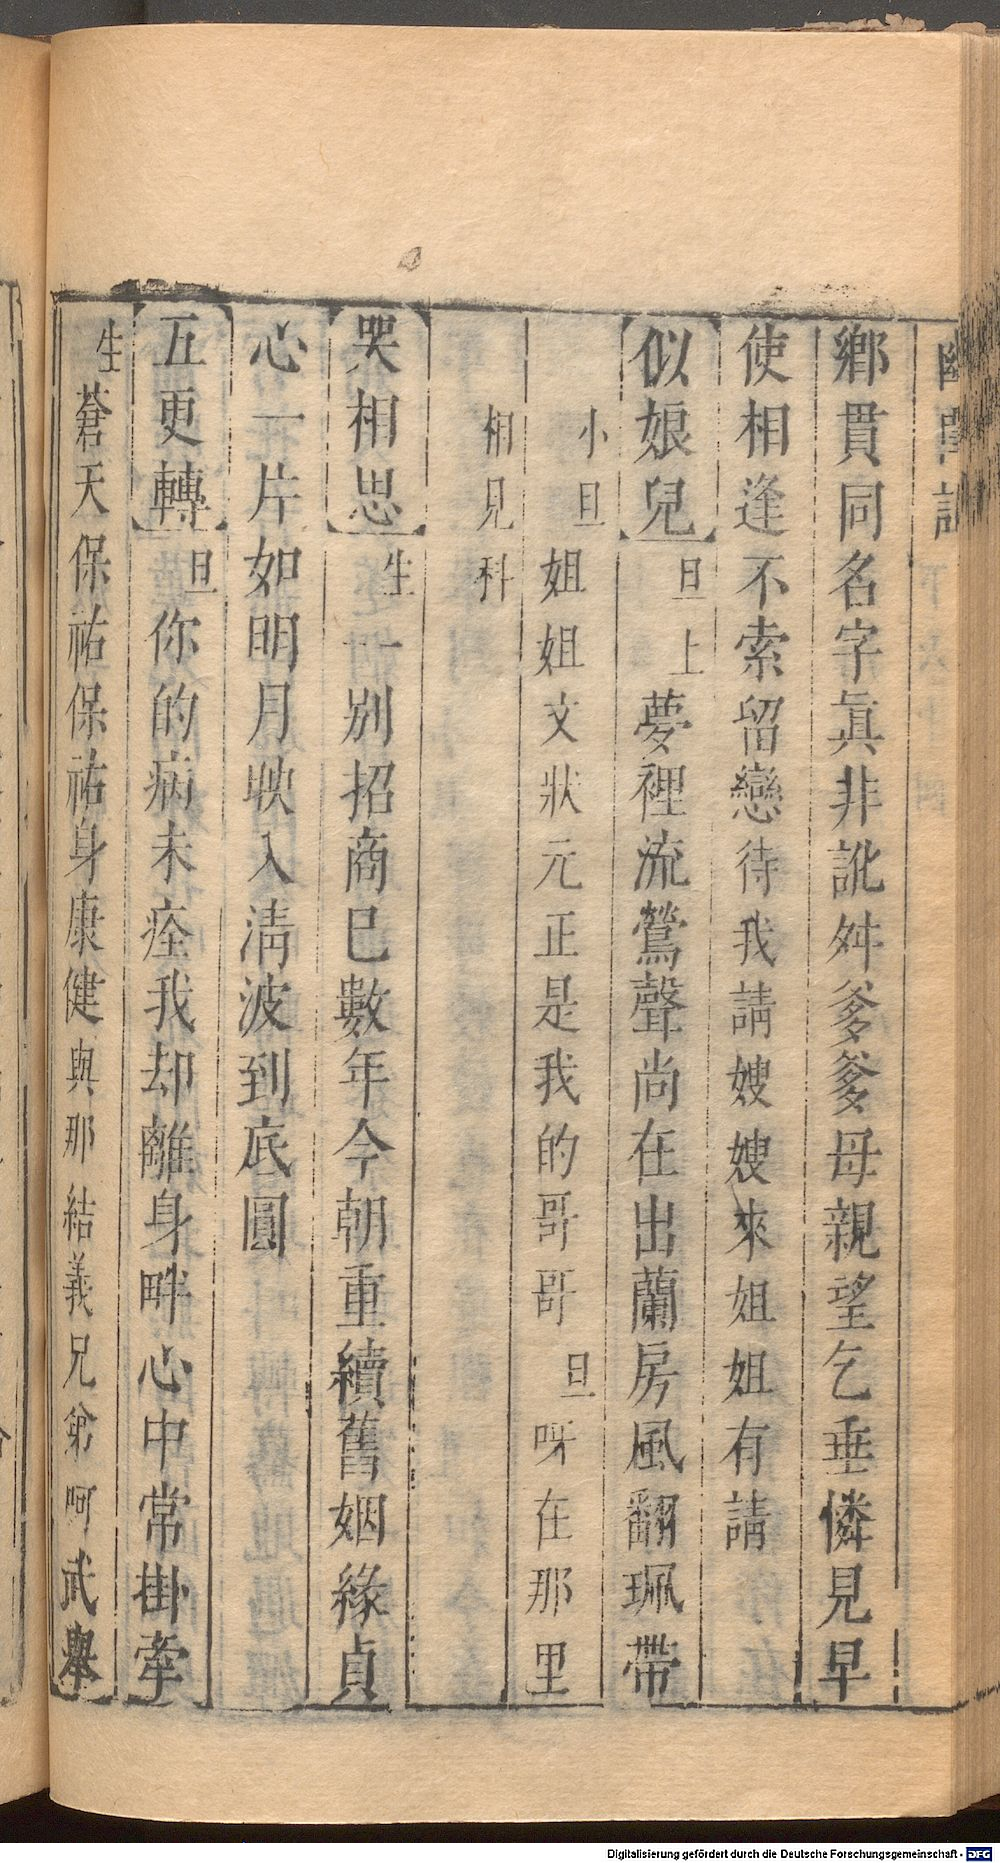 鄉貫同名字眞非訛舛爹爹母親望乞垂憐見早
使相逢不索留戀待我請嫂嫂來姐姐有請
似娘兒 旦上 夢裡流鶯聲尚在出蘭房風翻珮帶
小旦 姐姐文狀元正是我的哥哥 旦 呀在那里
相見科
哭相思 生 一別招商巳數年今朝重續舊姻緣貞
心一片如明月映入清波到底圓
五更轉 旦 你的病未痊我却離身畔心中常掛牽
生 蒼天保祐保祐身康健與那結義兄弟呵武舉
Digitalisierung gefördert durch die Deutsche Forschungsgemeinschaft - DFG